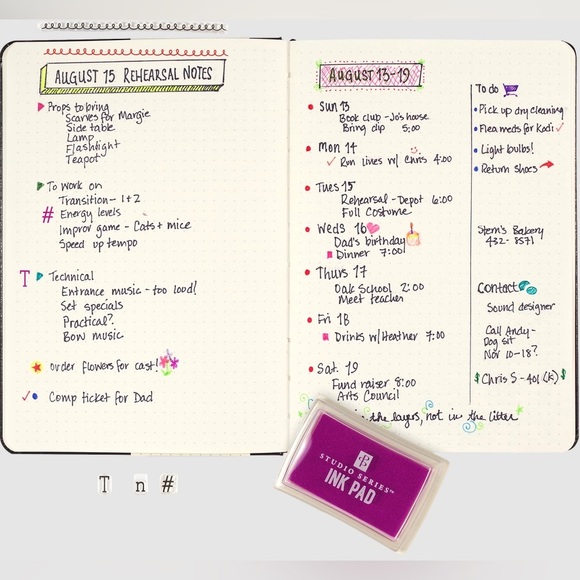 AUGUST 15 REHEARSAL NOTES
Props to bring
Scarves for Margie
Side table
Lamp
Flashlight
Teapot
To work on
Transition - 1+2
# Energy levels
Improv game - Cats + mice
Speed up tempo
T Technical
Entrance music - too loud!
Set specials
Practical?
Bow music
order flowers for cast!
✓ Comp ticket for Dad
T n #
AUGUST 13-19
Sun 13
Book club - Jo's house
Bring dip 5:00
Mon 14
✓ Run lines w/ Chris 4:00
Tues 15
Rehearsal - Depot 6:00
Full Costume
Weds 16
Dad's birthday
Dinner 7:00
Thurs 17
Oak School 2:00
Meet teacher
Fri 18
Drinks w/ Heather 7:00
Sat. 19
Fund raiser 8:00
Arts Council
the layers, not in the litter
To do
Pick up dry cleaning
Flea meds for Kodi ✓
Light bulbs!
Return shoes
Stern's Bakery
432-8571
Contact
Sound designer
Call Andy-
Dog sit
Nov 10-18?
$ Chris S - 401(k) $
STUDIO SERIES™
INK PAD